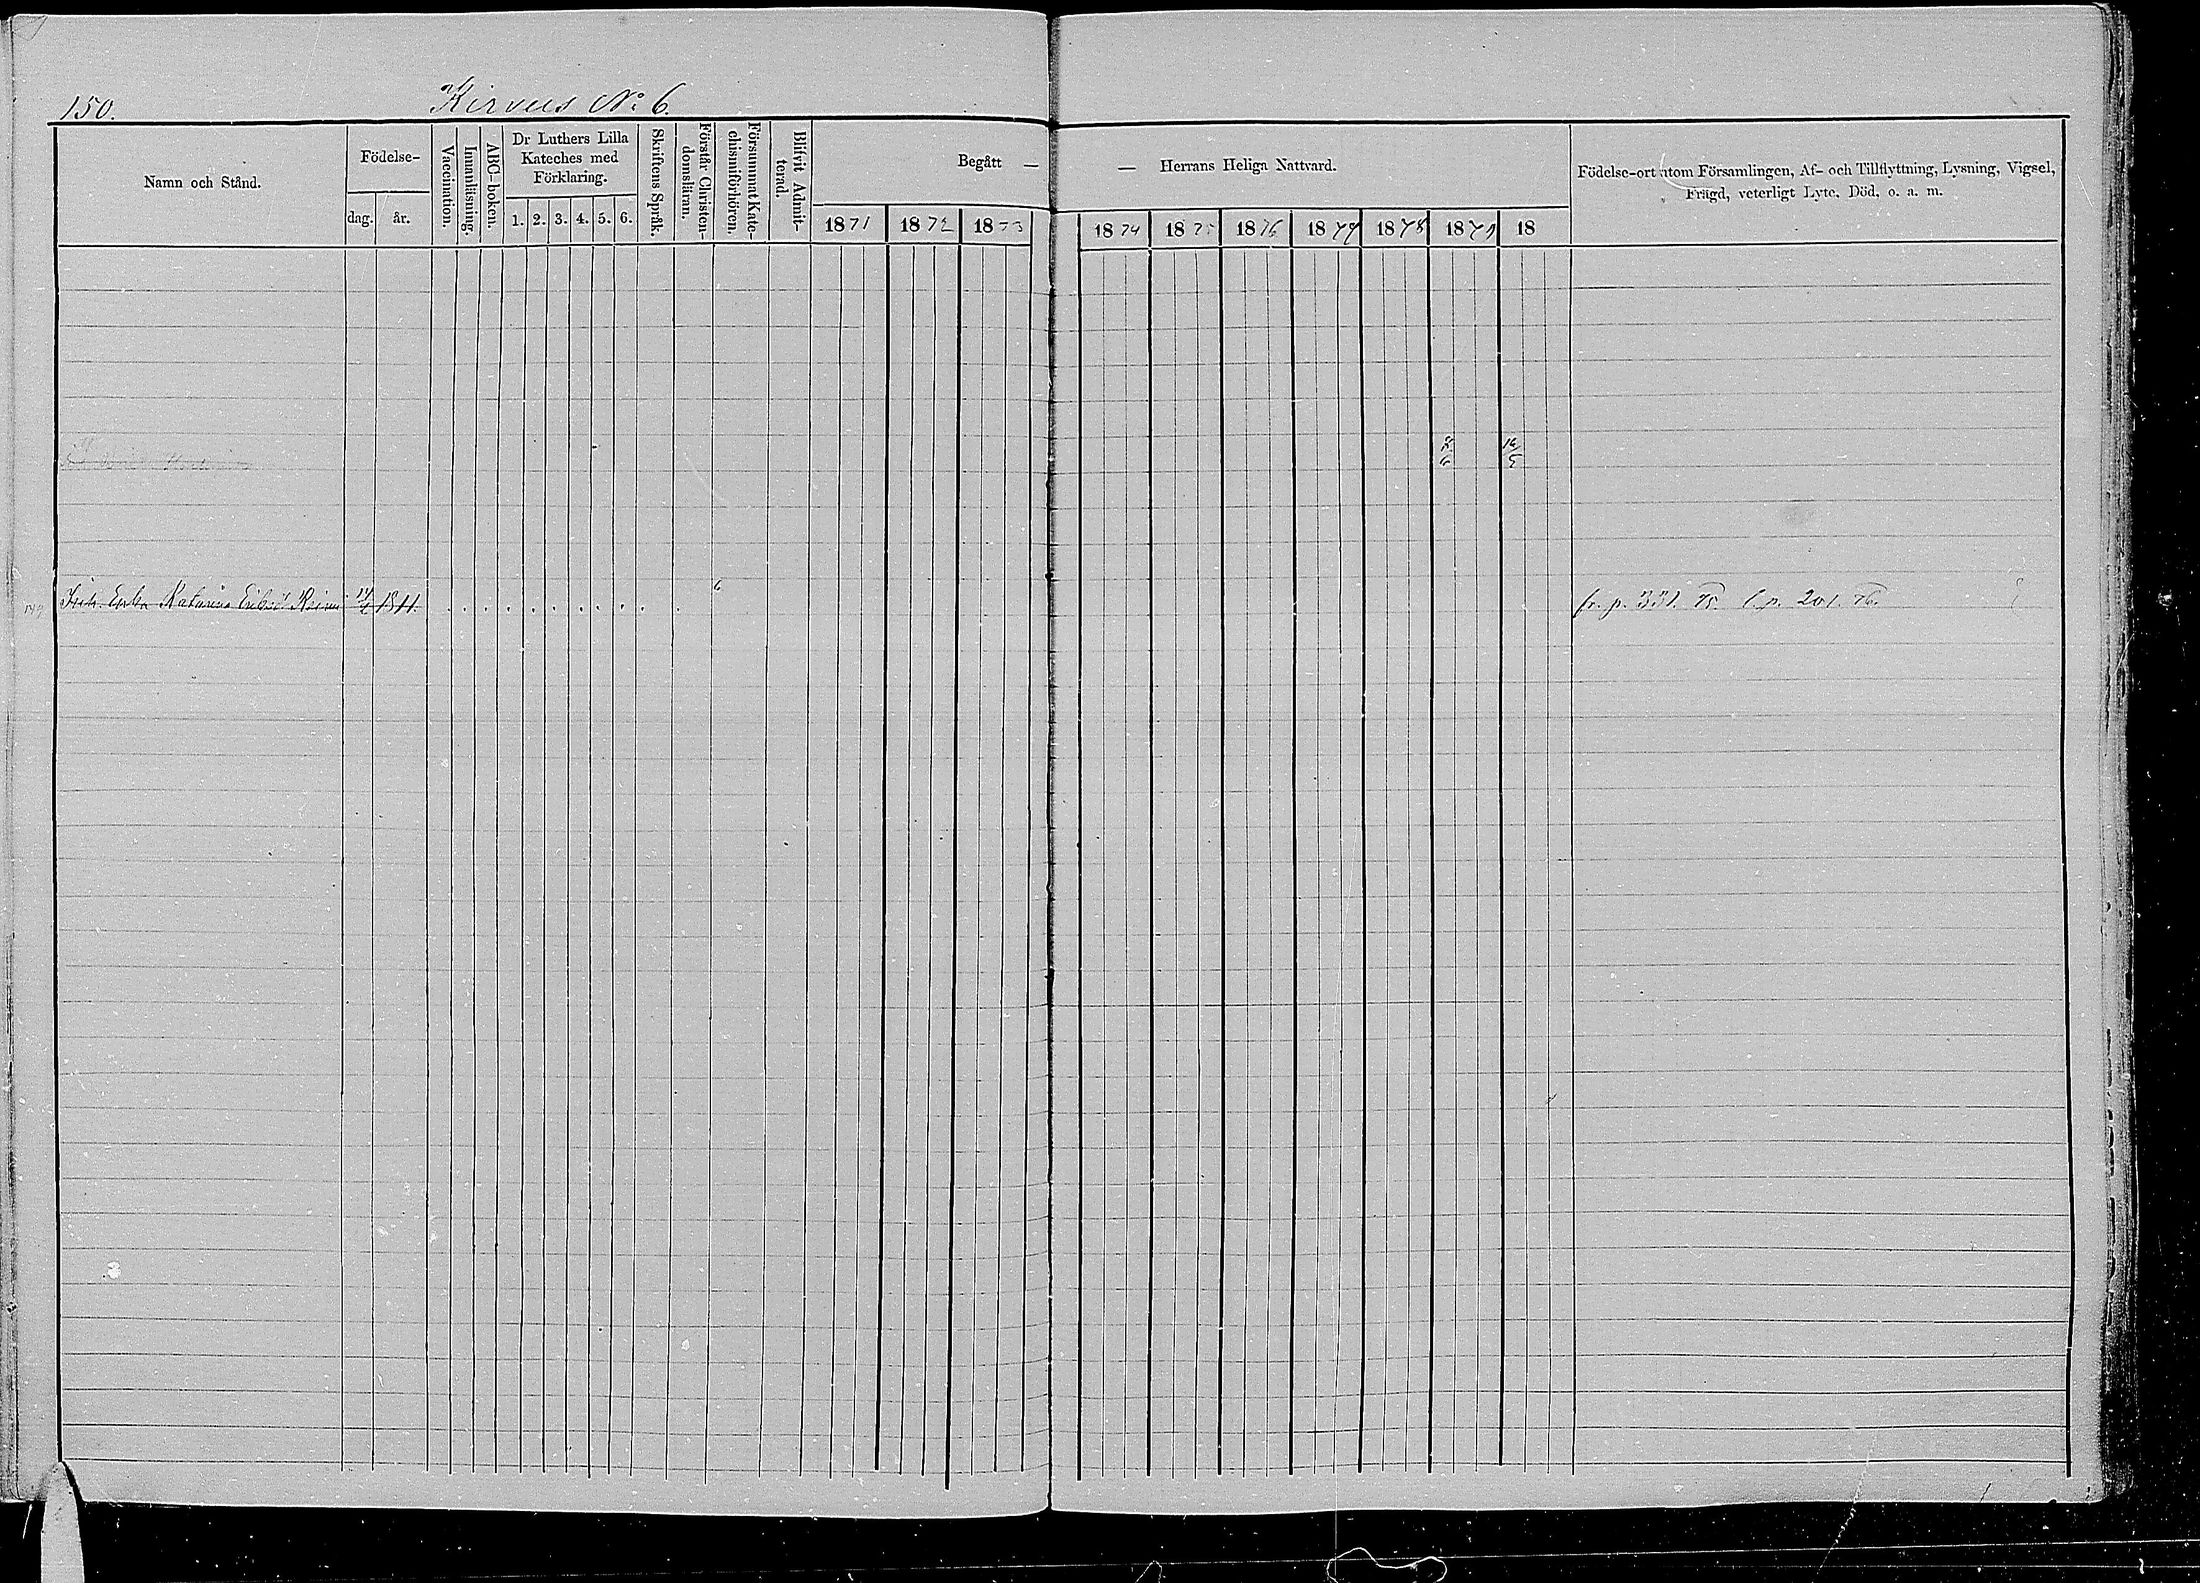 150. Kirvus No 6.
Namn och Stånd.
Födelse-
dag. år.
Vaccination.
Innanläsning.
ABC-boken.
Dr Luthers Lilla
Kateches med
Förklaring.
1. 2. 3. 4. 5. 6.
Skriftens Språk.
Förstår Christen-
domsläran.
Försummat Kate-
chismiförhören.
Blifvit Admit-
terad.
Begått —
1871 1872 1873
— Herrans Heliga Nattvard.
1874 1875 1876 1877 1878 1879 18
Födelse-ort utom Församlingen, Af- och Tillflyttning, Lysning, Vigsel,
Frägd, veterligt Lyte, Död, o. a. m.
16/5
Enka Katarina 1811 6 fr. p. 331. 75. l. p. 201. 76.